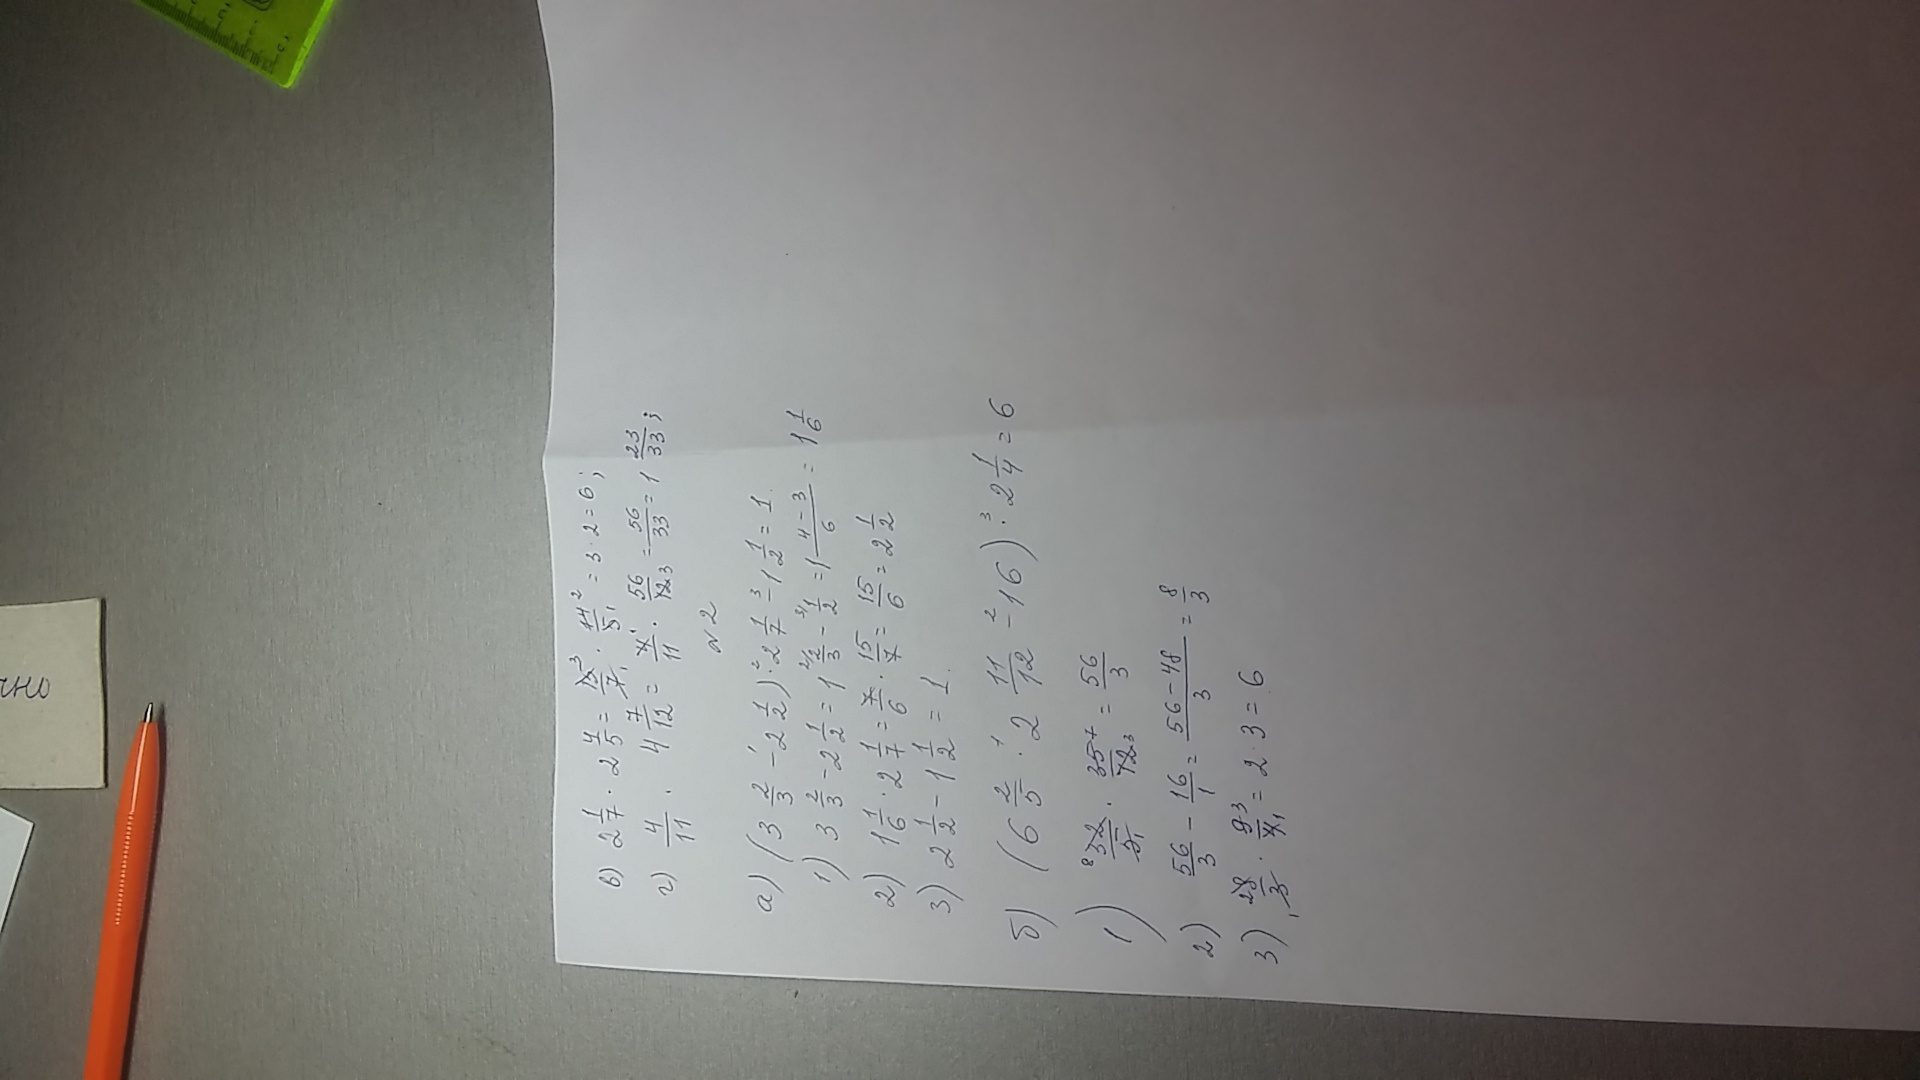 чно
в) 2 1/7 · 2 4/5 = 15³/7₁ · 14²/5₁ = 3 · 2 = 6;
г) 4/11 · 4 7/12 = 4¹/11 · 56/12₃ = 56/33 = 1 23/33;
№2
а) (3 2/3 -¹ 2 1/2) ·² 2 1/7 -³ 1 1/2 = 1
1) 3 2/3 - 2 1/2 = 1 2/3 - 1/2 = 1 (4-3)/6 = 1 1/6
2) 1 1/6 · 2 1/7 = 7/6 · 15/7 = 15/6 = 2 1/2
3) 2 1/2 - 1 1/2 = 1
б) (6 2/5 ·¹ 2 11/12 -² 16) ·³ 2 1/4 = 6
1) ⁸32/5₁ · 35⁷/12₃ = 56/3
2) 56/3 - 16/1 = (56-48)/3 = 8/3
3) 28/3₁ · 9³/4₁ = 2 · 3 = 6